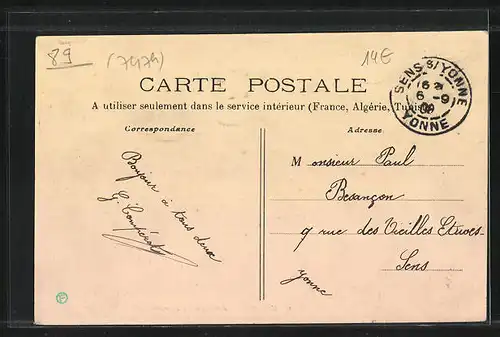 89
(7474)
14€
CARTE POSTALE
A utiliser seulement dans le service intérieur (France, Algérie, Tunisie)
SENS S/YONNE
6 -9
09
YONNE
Correspondance
Adresse
Bonjour à tous deux
G. Compérot
Monsieur Paul
Besançon
9 rue des Vieilles Etuves
Sens
Yonne